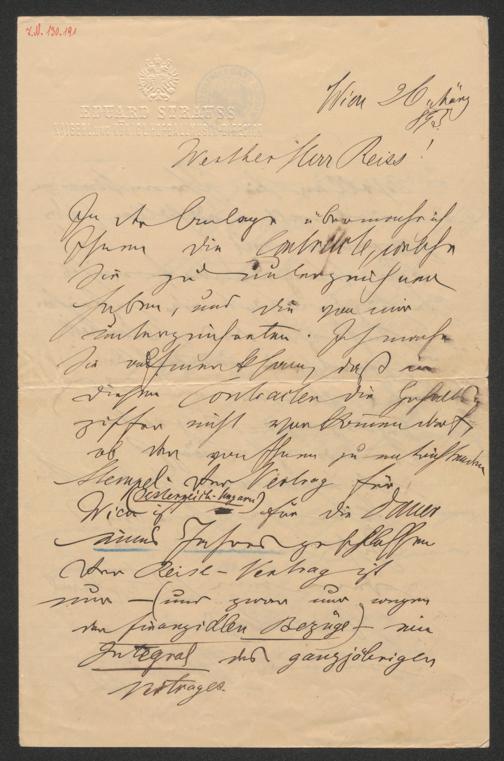 I.N. 130.191
EDUARD STRAUSS
Wien 26 März
Werther Herr Reiss!
In der Beilage übermache ich
Ihnen die Contracte, welche
Sie zu unterzeichnen
haben, und die von mir
unterzeichneten. Ich mache
Sie aufmerksam, daß in
diesen Contracten die
ziffer nicht vorkommen darf,
ob der von Ihnen zu entrichtenden
Stempel. Der Vertrag für
(Oesterreich-Ungarn)
Wien ist für die Dauer
eines Jahres geschlossen
Der Reise-Vertrag ist
nur – (und zwar nur wegen
der finanziellen Bezüge) – ein
Integral des ganzjährigen
Vertrages.